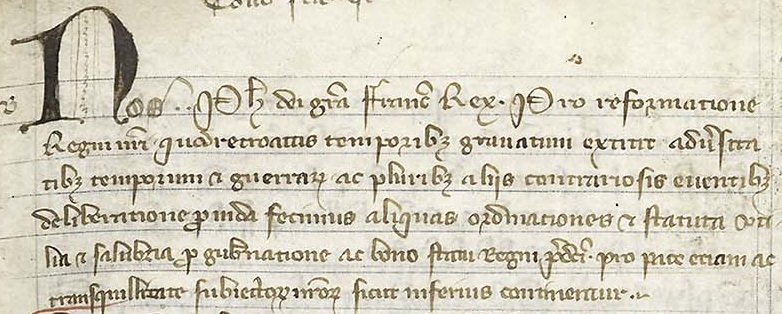 Nos .. Ph dei gr̄a Franc̄ Rex. Pro reformatione
Regni nr̄i quod retroactis temporibꝫ grauatum extitit adu̓sita
tibꝫ temporum & guerraꝝ ac pluribꝫ aliis contrariosis euentibꝫ
deliberatione ꝓuida fecimus aliquas ordinationes & statuta vti
lia & salubria ꝓ gub̓natione ac bono statu Regni p̄dc̄i. pro pace etiam ac
transquillitate subiectoꝝ nr̄oꝝ sicut inferius continetur.